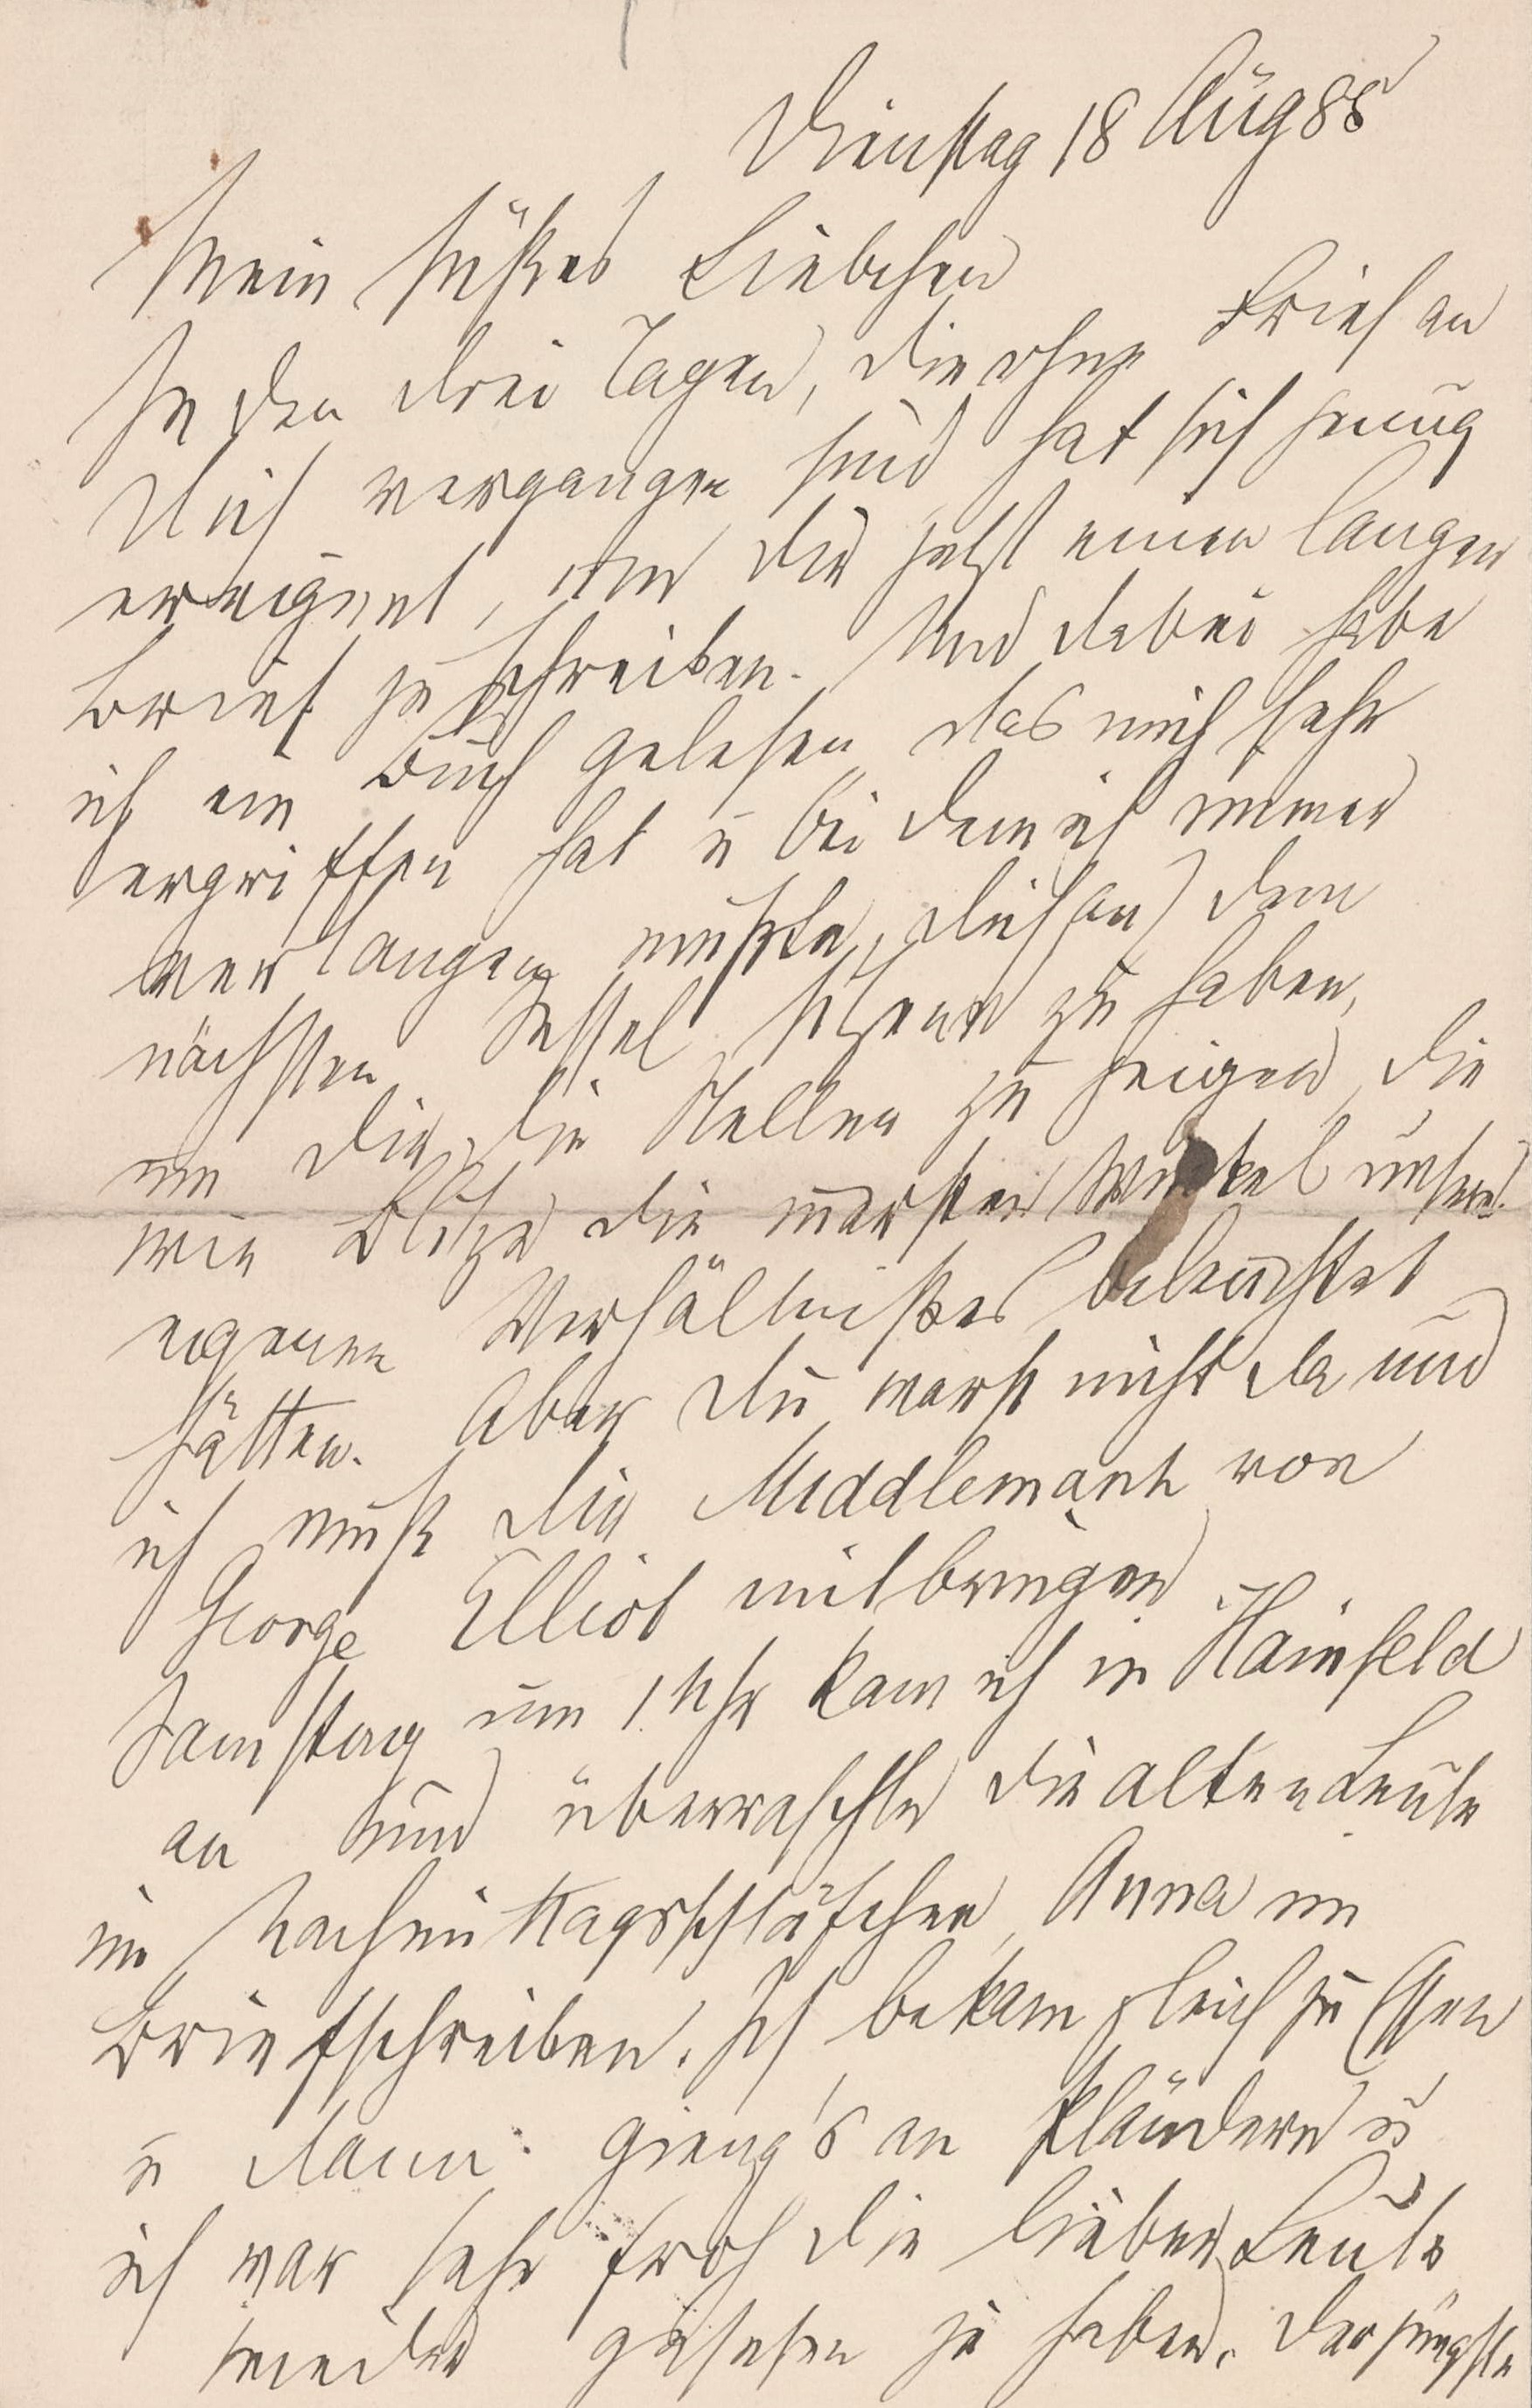 Dienstag 18 Aug 85
Mein süßes Liebchen
In den drei Tagen, die ohne Brief an
Dich vergangen sind hat sich genug
ereignet, um Dir jetzt einen langen
Brief zu schreiben. Und dabei habe
ich ein Buch gelesen, das mich sehr
ergriffen hat u bei dem ich immer
verlangen mußte, Dich an dem
nächsten Sessel sitzend zu haben,
um Dir die Stellen zu zeigen, die
wie Blitze die Winkel unseres
eigenen Verhältnißes beleuchtet
hätten. Aber Du warst nicht da und
ich muß Dir Middlemarch von
George Elliot mitbringen
Samstag um 1 Uhr kam ich in Hainfeld
an und überraschte die alten Leute
im Nachmittagsschläfchen, Anna im
Briefschreiben. Ich bekam gleich zu Essen
u dann gieng's an Plaudern u
ich war sehr froh die lieben Leute
wieder gesehen zu haben. Der jüngste